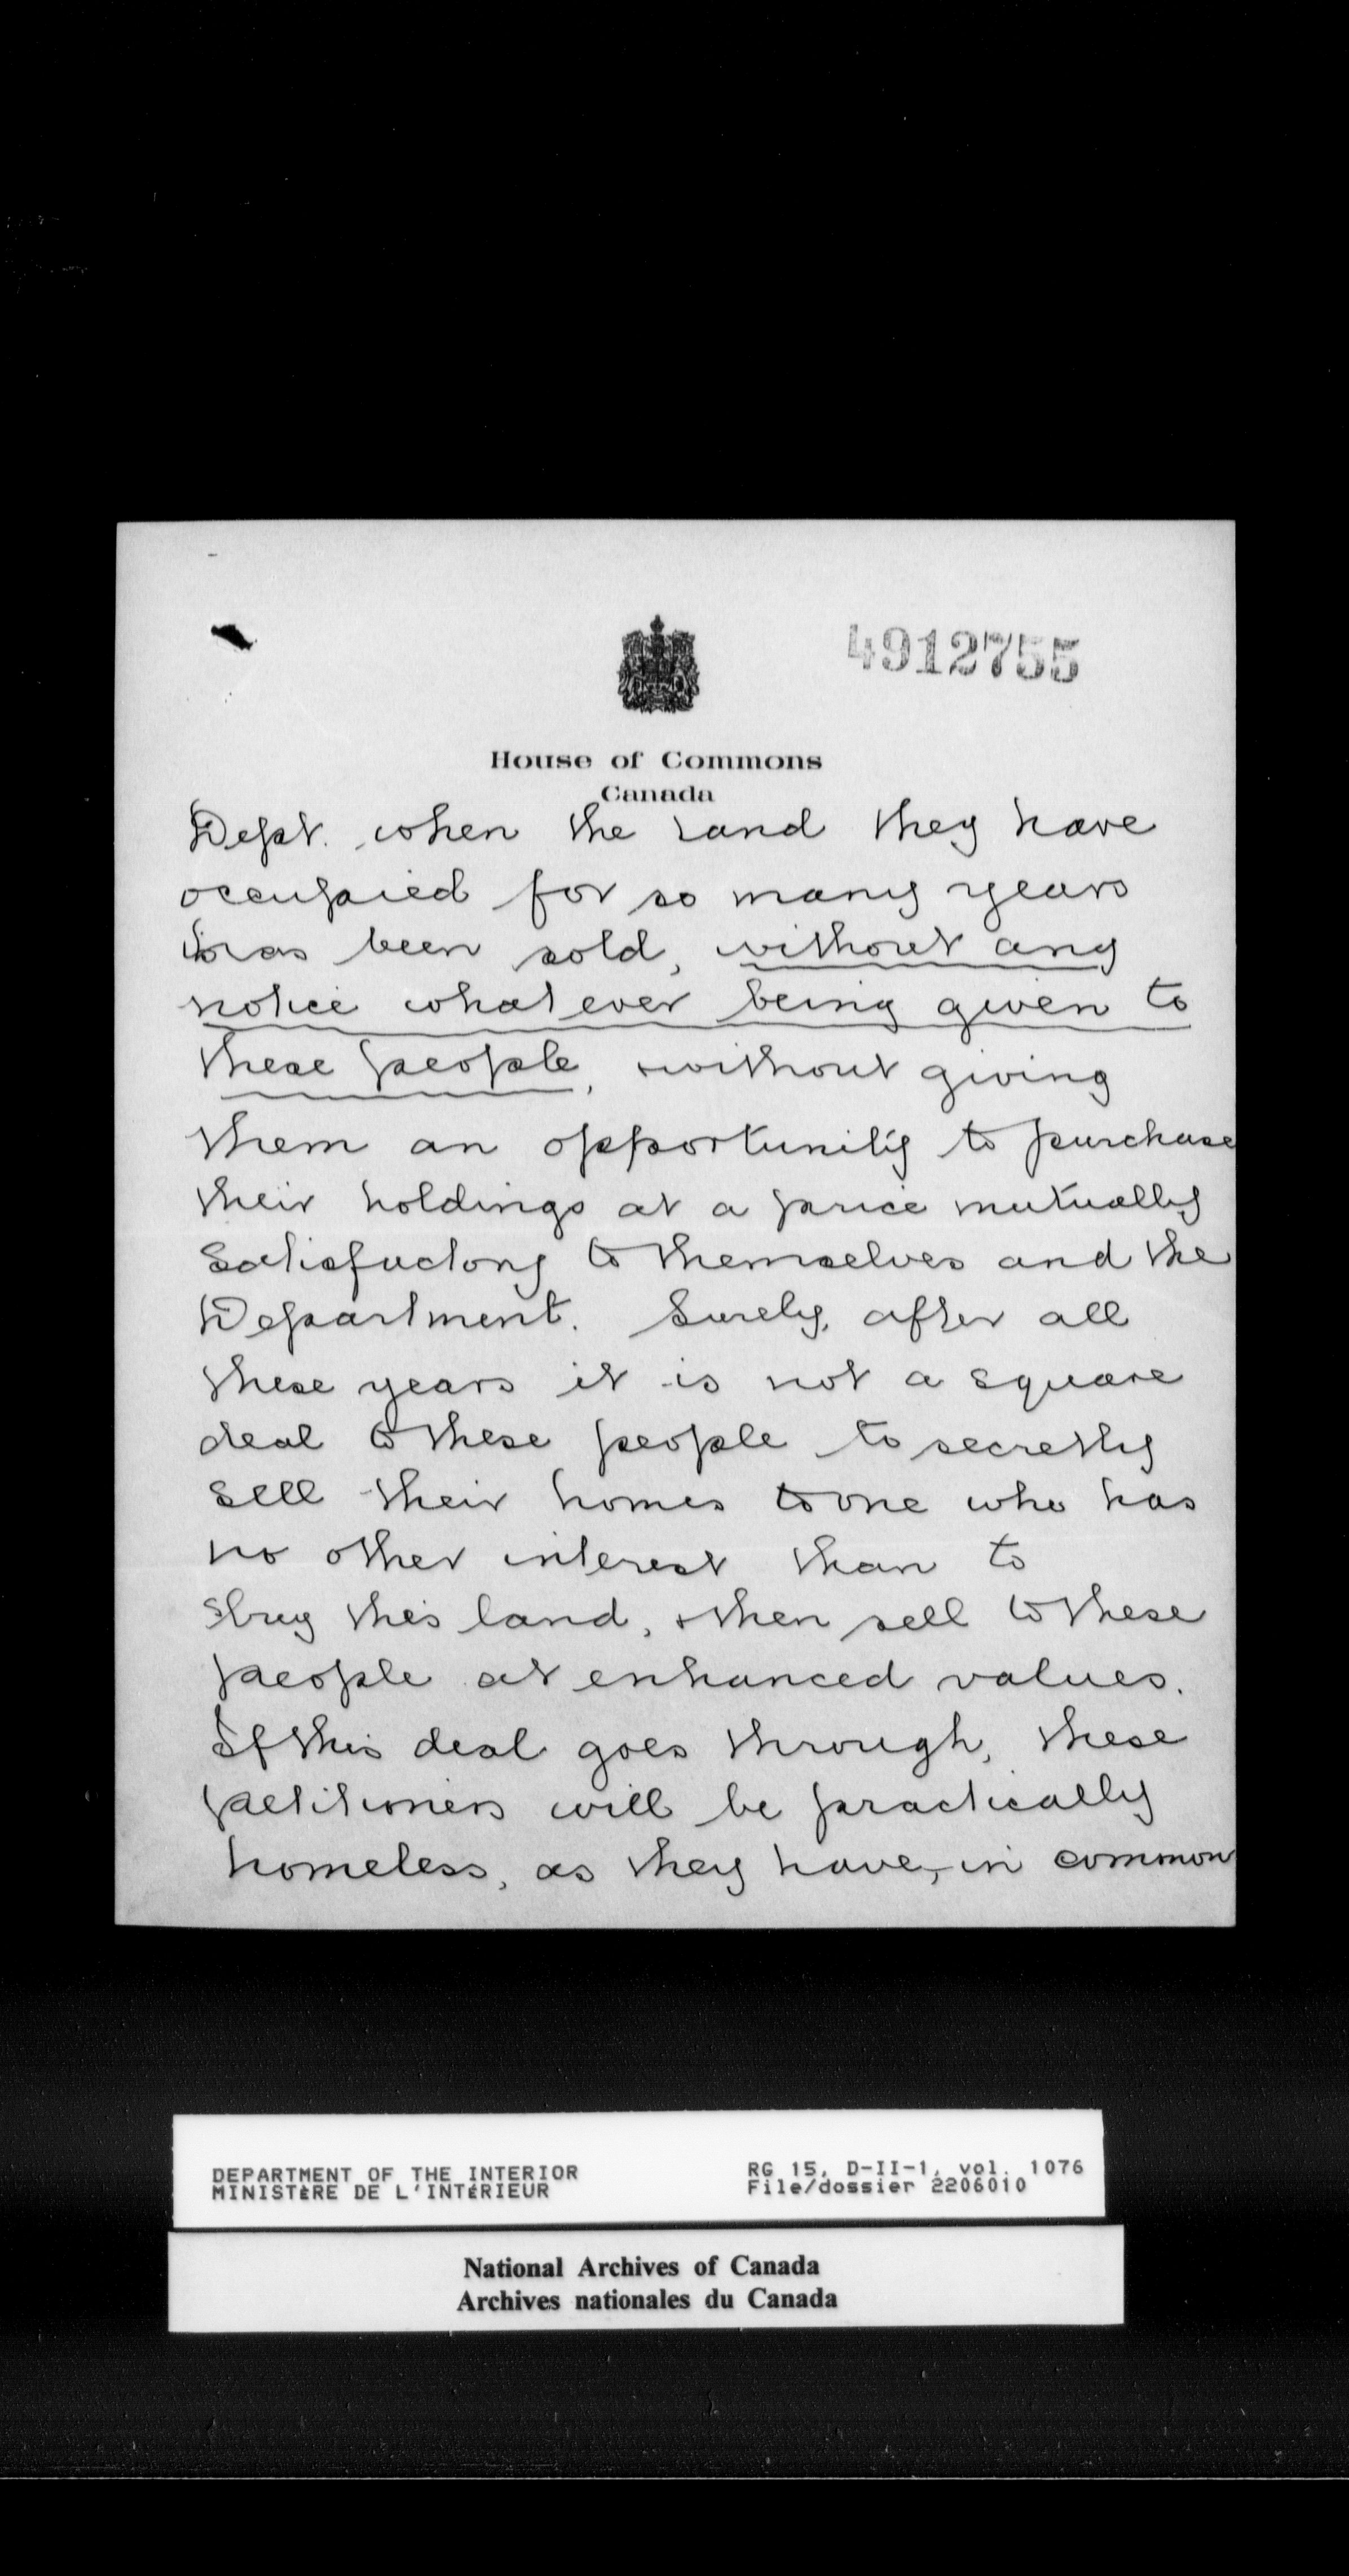 4912755
House of Commons
Canada
Dept. when the land they have
occupied for so many years
has been sold, without any
notice whatever being given to
these people, without giving
them an opportunity to purchase
their holdings at a price mutually
satisfactory to themselves and the
Department. Surely, after all
these years it is not a square
deal to these people to secretly
sell their homes to one who has
no other interest than to
buy this land, & then sell to these
people at enhanced values.
If this deal goes through, these
petitioners will be practically
homeless, as they have, in common
DEPARTMENT OF THE INTERIOR
MINISTÈRE DE L'INTÉRIEUR
RG 15, D-II-1, vol. 1076
File/dossier 2206010
National Archives of Canada
Archives nationales du Canada